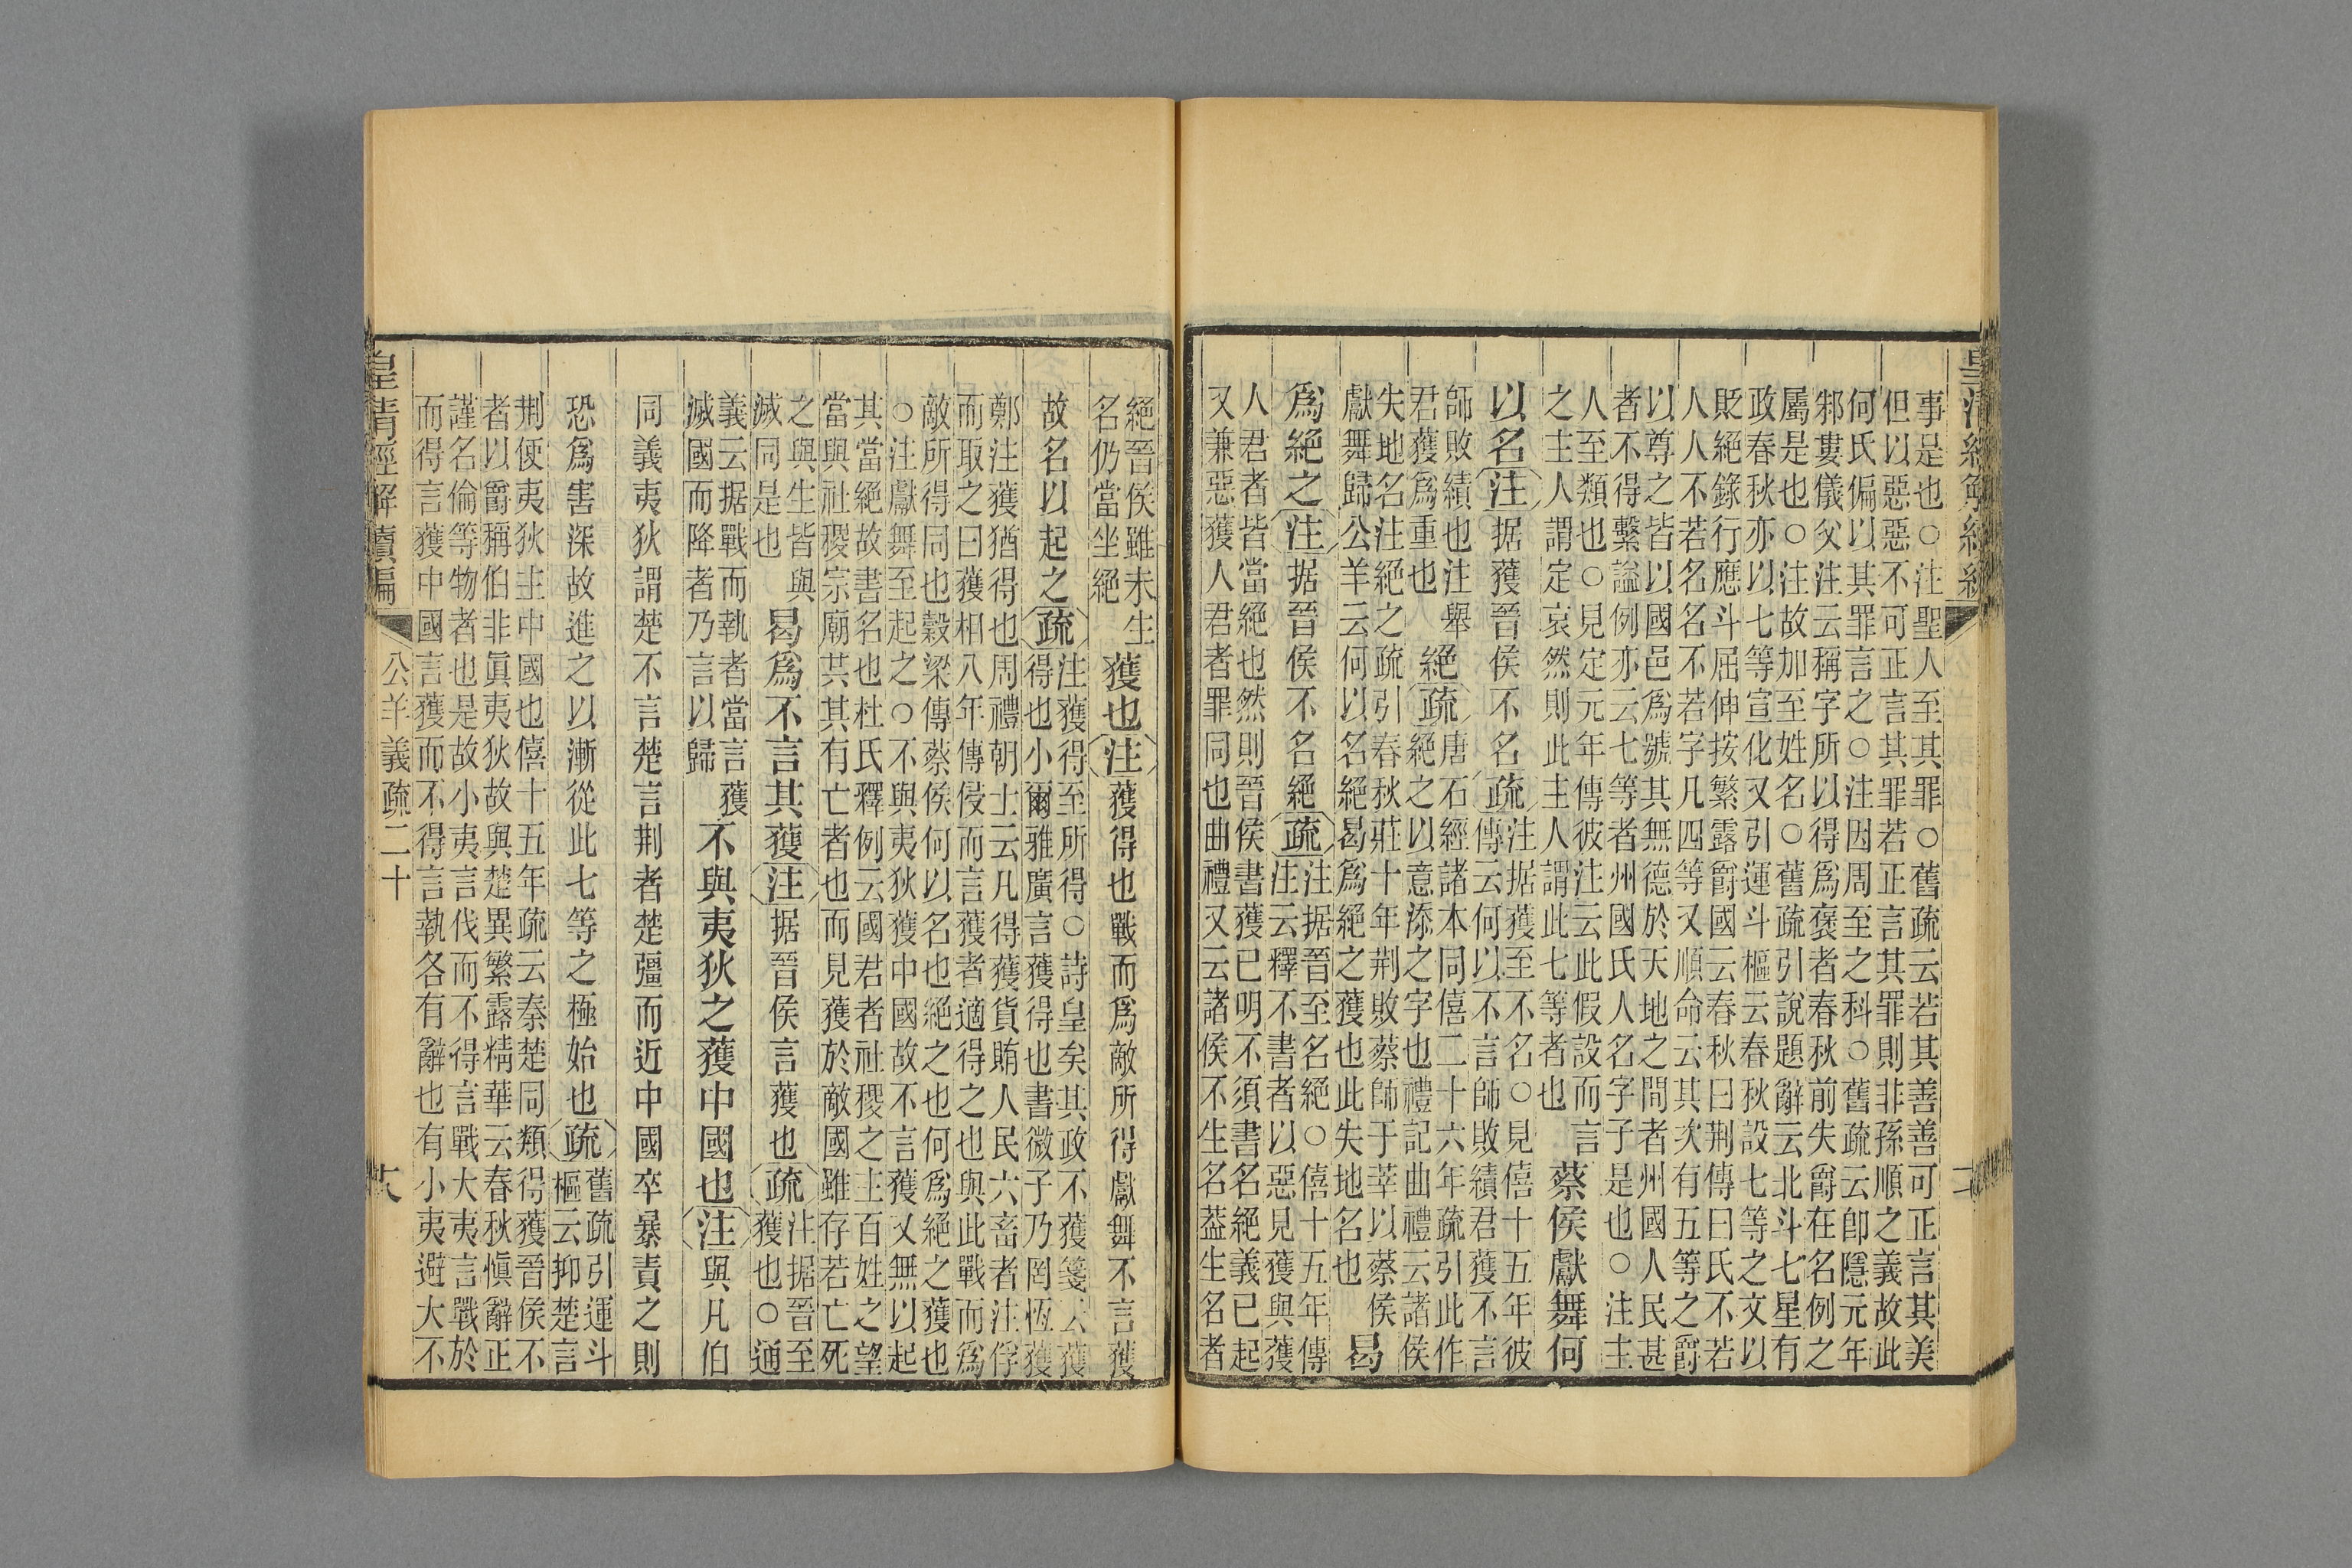 皇清經解續編
事是也○注聖人至其罪○舊疏云若其善善可正言其美
但以惡惡不可正言其罪若正言其罪則非孫順之義故此
何氏偏以其罪言之○注因周至之科○舊疏云卽隱元年
邾婁儀父注云稱字所以得爲褒者春秋前失爵在名例之
屬是也○注故加至姓名○舊疏引說題辭云北斗七星有
政春秋亦以七等宣化又引運斗樞云春秋設七等之文以
貶絕錄行應斗屈伸按繁露爵國云春秋曰荆傳曰氏不若
人人不若名名不若字凡四等又順命云其次有五等之爵
以尊之皆以國邑爲號其無德於天地之間者州國人民甚
者不得繫諡例亦云七等者州國氏人名字子是也○注主
人至類也○見定元年傳彼注云此假設而言
之主人謂定哀然則此主人謂此七等者也
蔡侯獻舞何
以名注据獲晉侯不名疏注据獲至不名○見僖十五年彼
傳云何以不言師敗績君獲不言
師敗績也注舉
君獲爲重也
絕疏唐石經諸本同僖二十六年疏引此作
絕之以意添之字也禮記曲禮云諸侯
失地名注絕之疏引春秋莊十年荆敗蔡師于莘以蔡侯
獻舞歸公羊云何以名絕曷爲絕之獲也此失地名也
曷
爲絕之注据晉侯不名絕疏注据晉至名絕○僖十五年傳
注云釋不書者以惡見獲與獲
人君者皆當絕也然則晉侯書獲已明不須書名絕義已起
又兼惡獲人君者罪同也曲禮又云諸侯不生名葢生名者
絕晉侯雖未生
名仍當坐絕
獲也注獲得也戰而爲敵所得獻舞不言獲
故名以起之疏注獲得至所得○詩皇矣其政不獲箋云獲
得也小爾雅廣言獲得也書微子乃罔恆獲
鄭注獲猶得也周禮朝士云凡得獲貨賄人民六畜者注俘
而取之曰獲相八年傳侵而言獲者適得之也與此戰而爲
敵所得同也穀梁傳蔡侯何以名也絕之也何爲絕之獲也
○注獻舞至起之○不與夷狄獲中國故不言獲又無以起
其當絕故書名也杜氏釋例云國君者社稷之主百姓之望
當與社稷宗廟共其有亡者也而見獲於敵國雖存若亡死
之與生皆與
滅同是也
曷爲不言其獲注据晉侯言獲也疏注据晉至
獲也○通
義云据戰而執者當言獲
滅國而降者乃言以歸
不與夷狄之獲中國也注與凡伯
同義夷狄謂楚不言楚言荆者楚彊而近中國卒暴責之則
恐爲害深故進之以漸從此七等之極始也疏舊疏引運斗
樞云抑楚言
荆使夷狄主中國也僖十五年疏云秦楚同類得獲晉侯不
者以爵稱伯非眞夷狄故與楚異繁露精華云春秋愼辭正
謹名倫等物者也是故小夷言伐而不得言戰大夷言戰於
而得言獲中國言獲而不得言執各有辭也有小夷避大不
皇清經解續編 公羊義疏二十 十八